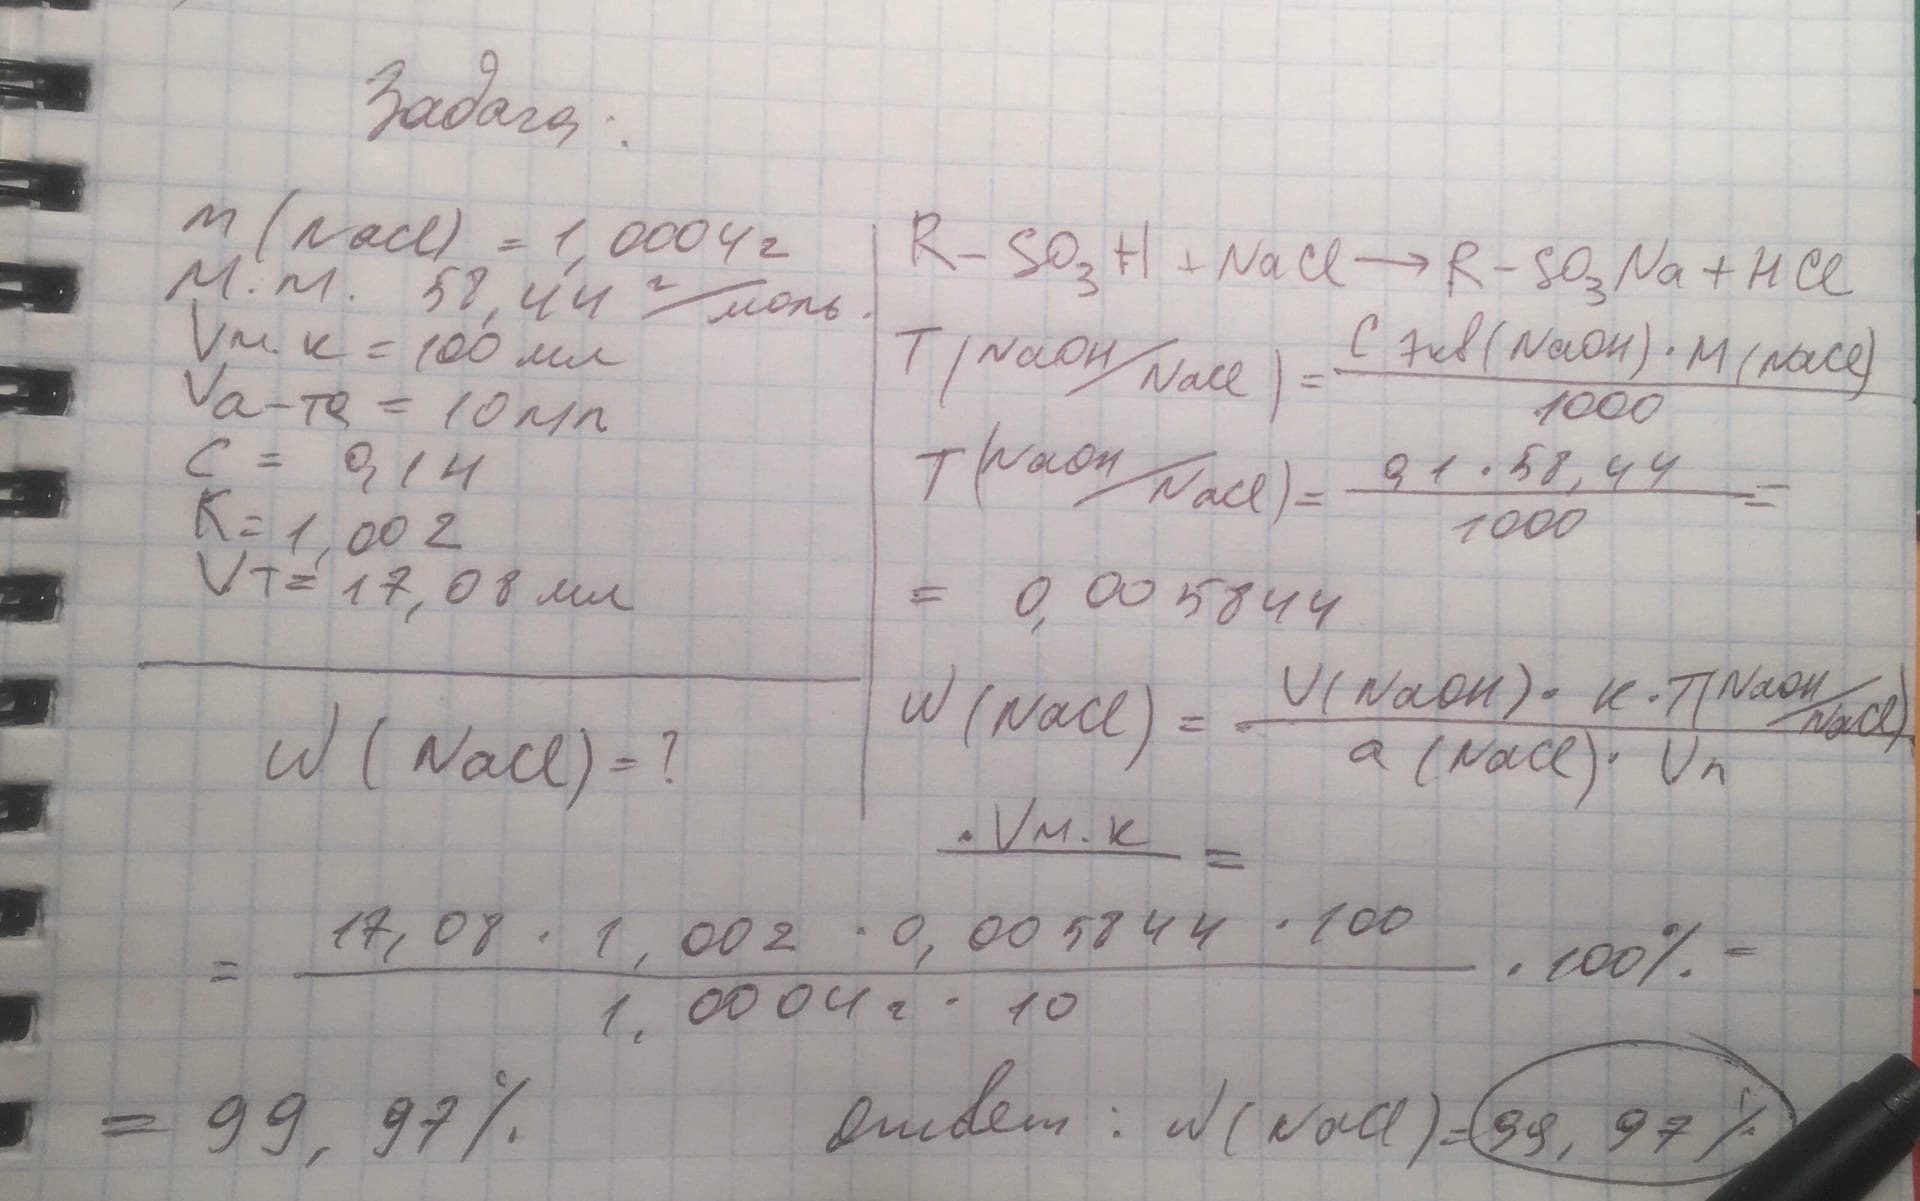 Задача:
m (NaCl) = 1,0004 г
М.м. 58,44 г/моль.
Vм.к = 100 мл
Vа-та = 10 мл
C = 0,1 Н
K = 1,002
Vт = 17,08 мл
W (NaCl) = ?
R-SO3H + NaCl → R-SO3Na + HCl
T (NaOH/NaCl) = C экв (NaOH) · M (NaCl) / 1000
T (NaOH/NaCl) = 0,1 · 58,44 / 1000 =
= 0,005844
W (NaCl) = V (NaOH) · K · T (NaOH/NaCl) / a (NaCl) · Vп
· Vм.к =
= 17,08 · 1,002 · 0,005844 · 100 / 1,0004 г · 10 · 100% =
= 99,97%.
Ответ: W (NaCl) = 99,97%